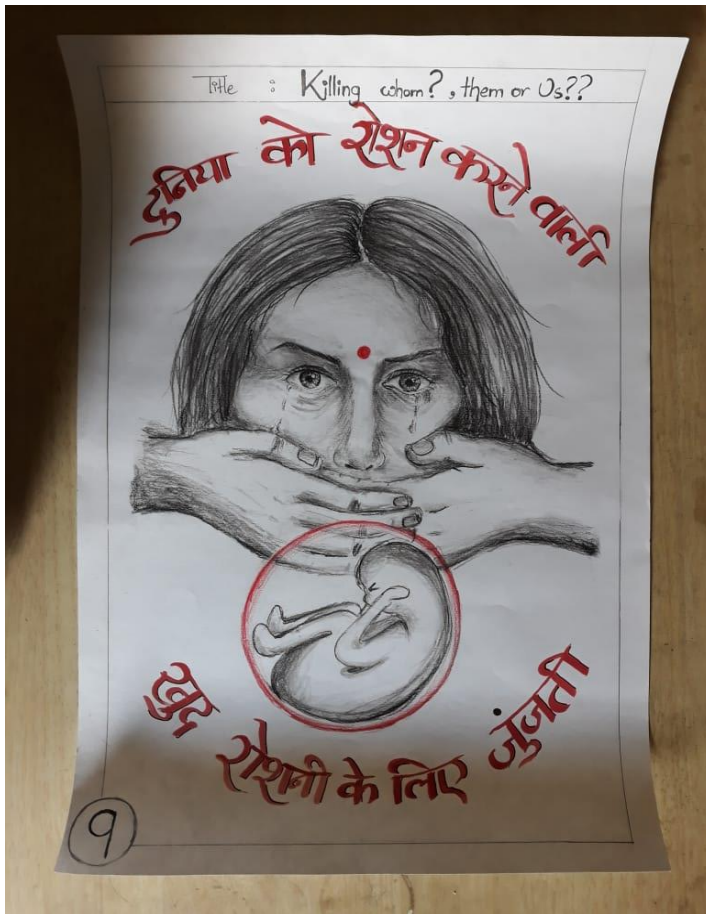 Title : Killing whom? , them or Us??
दुनिया को रोशन करने वाली
खुद रोशनी के लिए जुंजती
9